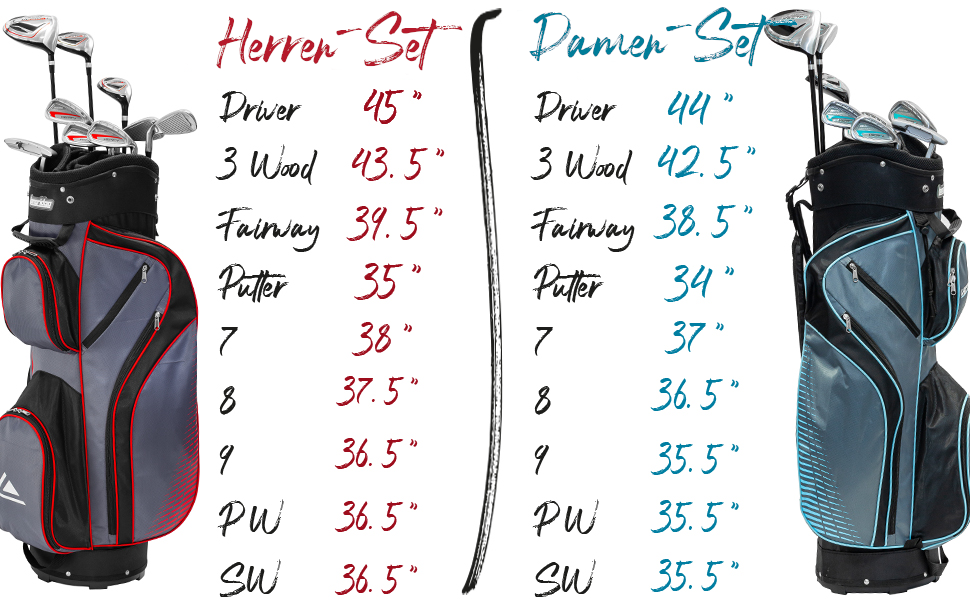 Herren-Set
Driver 45"
3 Wood 43.5"
Fairway 39.5"
Putter 35"
7 38"
8 37.5"
9 36.5"
PW 36.5"
SW 36.5"
Damen-Set
Driver 44"
3 Wood 42.5"
Fairway 38.5"
Putter 34"
7 37"
8 36.5"
9 35.5"
PW 35.5"
SW 35.5"